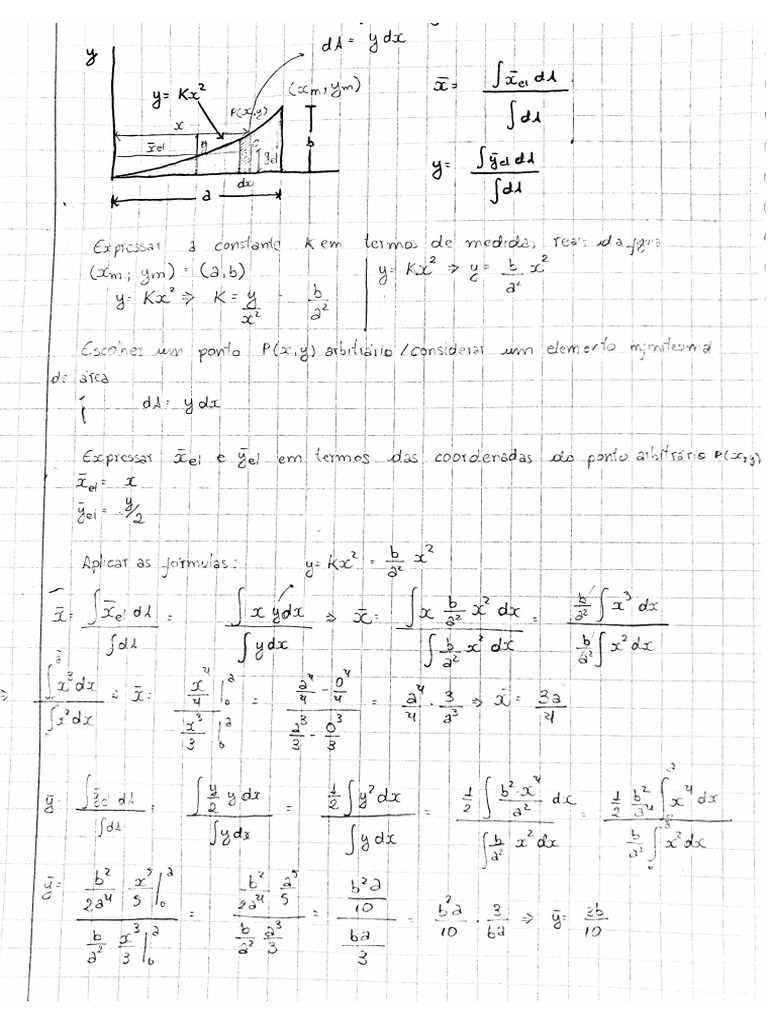 dA = y dx
y
y = Kx²
(xm, ym)
P(x,y)
x
x̄el
y
ȳel
b
dx
a
x̄ = ∫x̄el dA / ∫dA
y = ∫ȳel dA / ∫dA
Expressar a constante K em termos de medida, reais da figura
(xm; ym) = (a,b)
y = Kx² ⇒ y = b/a² x²
y = Kx² ⇒ K = y/x² = b/a²
Escolher um ponto P(x,y) arbitrário / considerar um elemento
de área
dA = y dx
Expressar x̄el e ȳel em termos das coordenadas do ponto arbitrário P(x,y)
x̄el = x
ȳel = y/2
Aplicar as fórmulas: y = Kx² = b/a² x²
x̄ = ∫x̄el dA / ∫dA = ∫x y dx / ∫y dx ⇒ x̄ = ∫x b/a² x² dx / ∫b/a² x² dx = b/a² ∫x³ dx / b/a² ∫x² dx
⇒ ∫x³ dx / ∫x² dx ⇒ x̄ = x⁴/4 |₀ᵃ / x³/3 |₀ᵃ = a⁴/4 - 0⁴/4 / a³/3 - 0³/3 = a⁴/4 · 3/a³ ⇒ x̄ = 3a/4
ȳ = ∫ȳel dA / ∫dA = ∫y/2 y dx / ∫y dx = 1/2 ∫y² dx / ∫y dx = 1/2 ∫b²·x⁴/a² dx / ∫b/a² x² dx = 1/2 b²/a⁴ ∫x⁴ dx / b/a² ∫x² dx
ȳ = b²/2a⁴ x⁵/5 |₀ᵃ / b/a² x³/3 |₀ᵃ = b²/2a⁴ a⁵/5 / b/a² a³/3 = b²a/10 / ba/3 = b²a/10 · 3/ba ⇒ ȳ = 3b/10